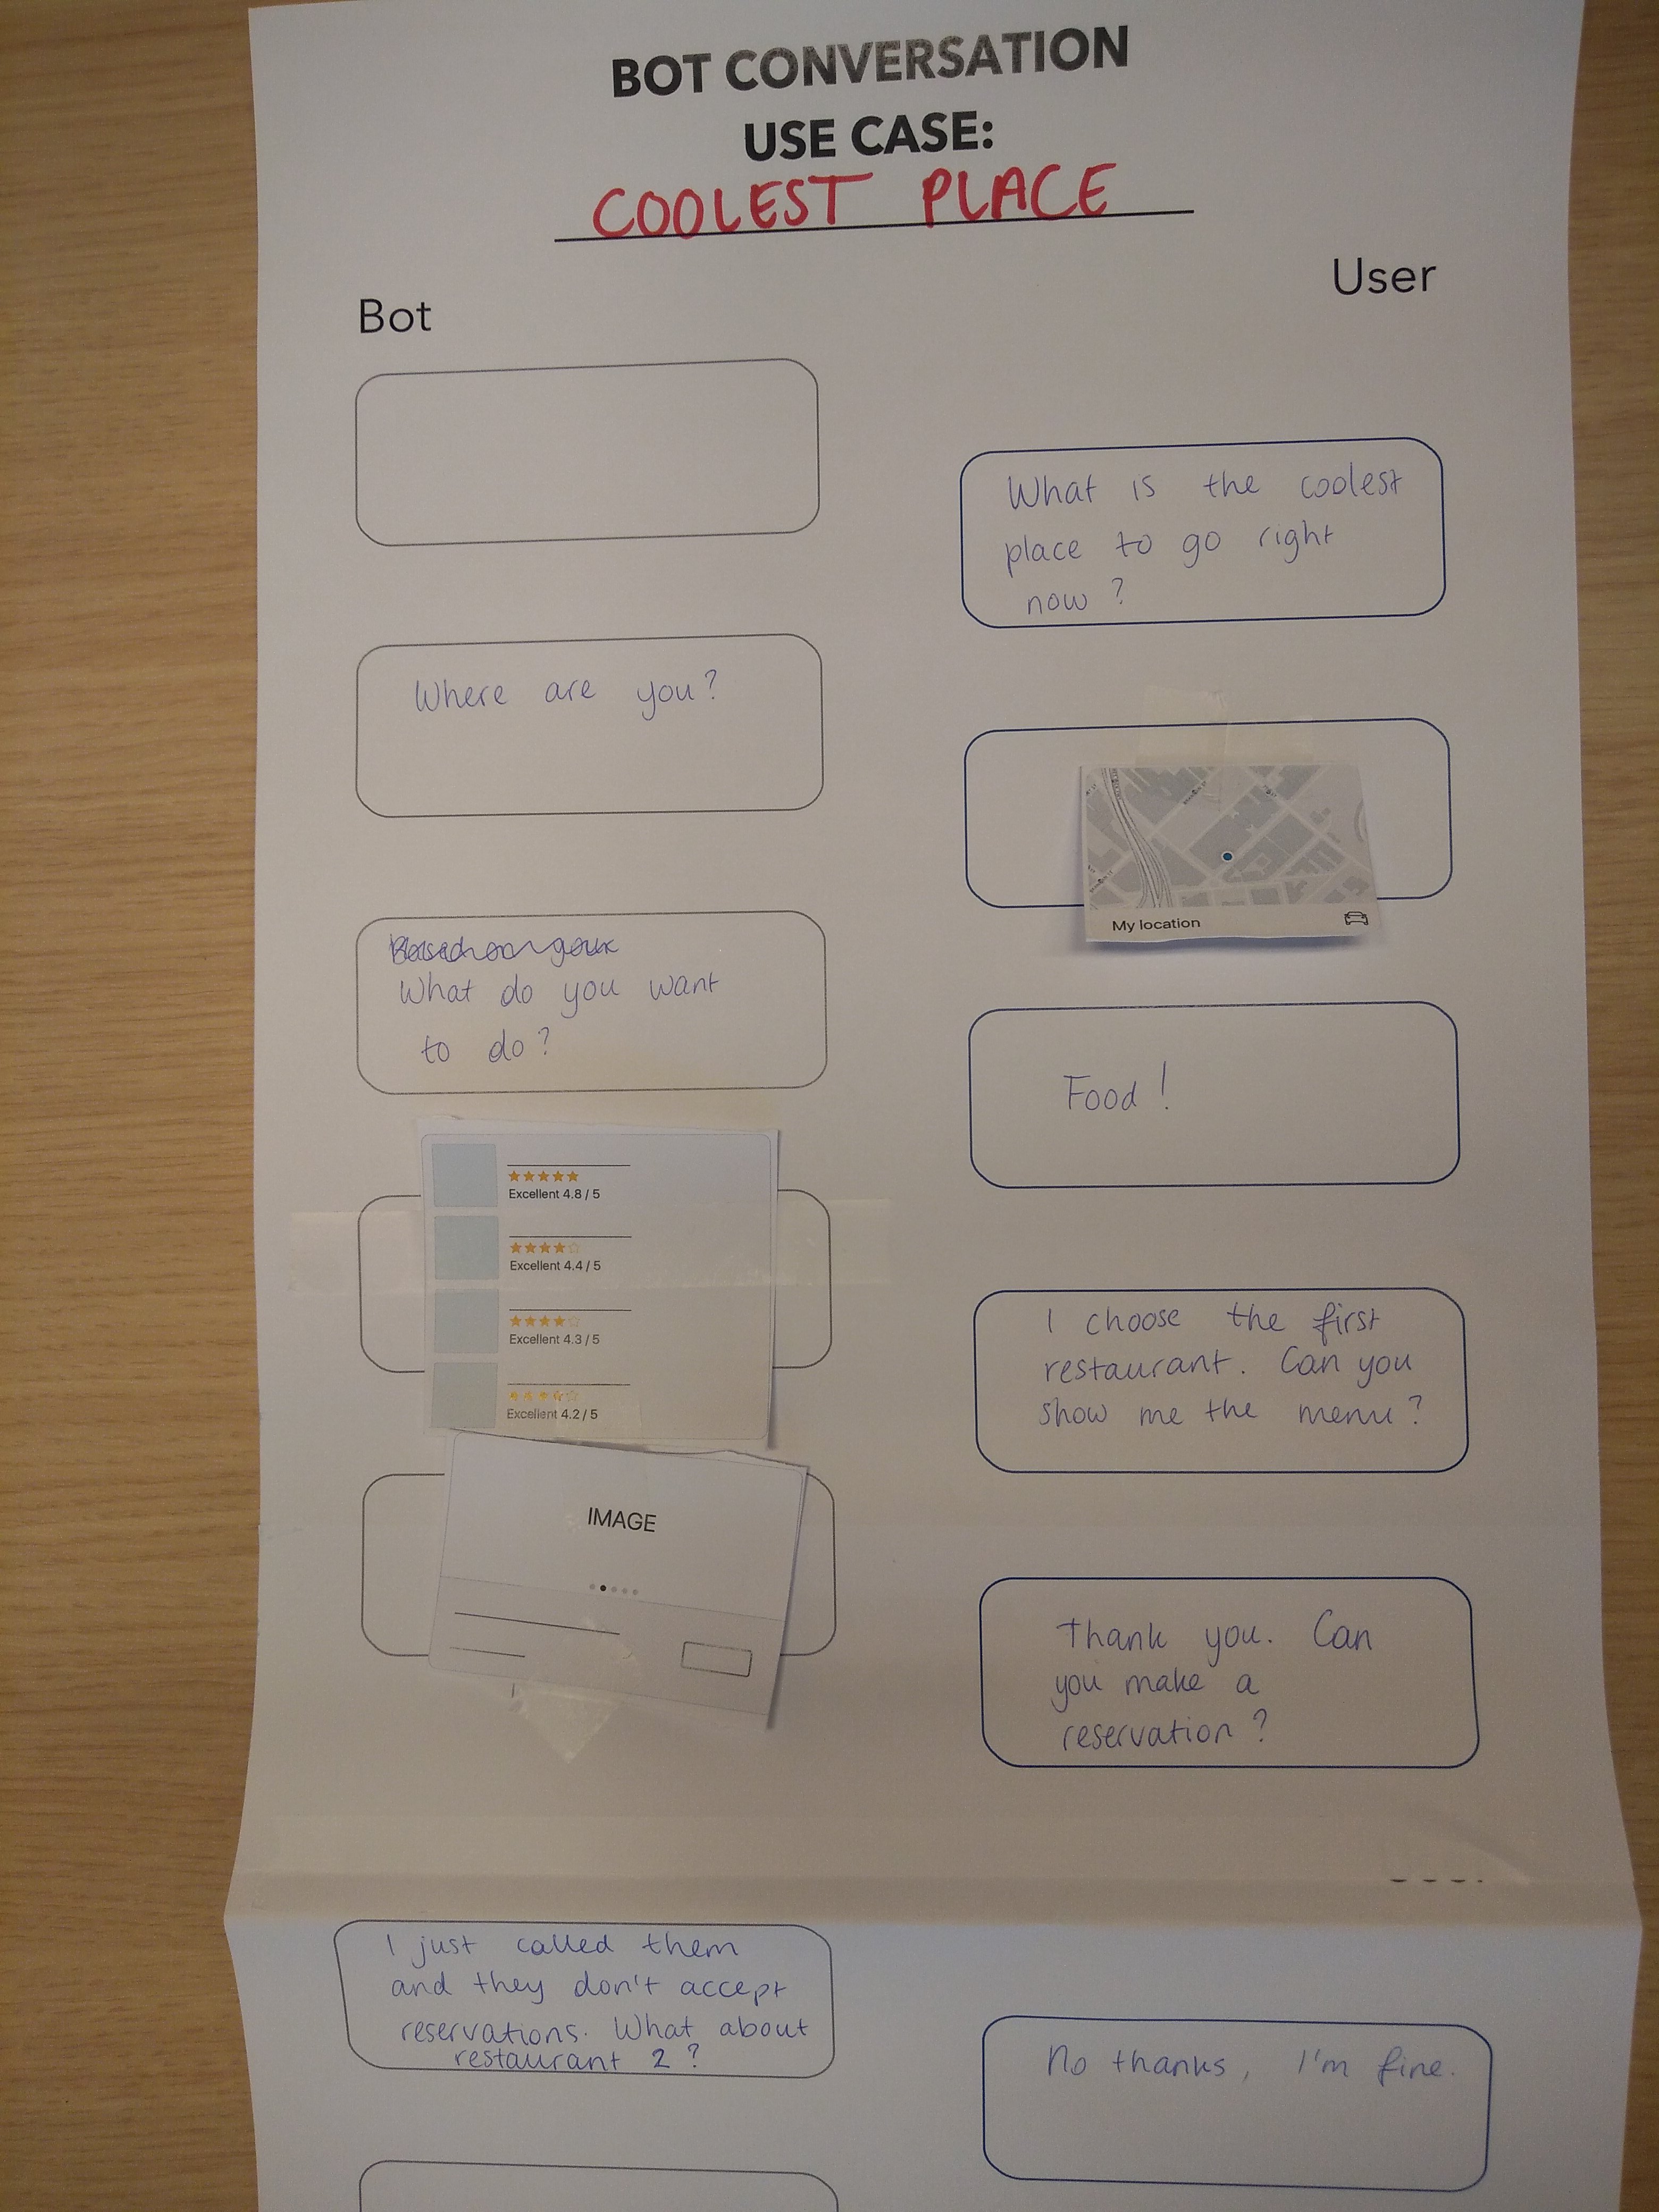 BOT CONVERSATION
USE CASE:
COOLEST PLACE
Bot
User
What is the coolest
place to go right
now ?
Where are you?
My location
What do you want
to do?
Food !
★★★★★
Excellent 4.8 / 5
★★★★☆
Excellent 4.4 / 5
★★★★☆
Excellent 4.3 / 5
Excellent 4.2 / 5
I choose the first
restaurant. Can you
show me the menu?
IMAGE
Thank you. Can
you make a
reservation ?
I just called them
and they don't accept
reservations. What about
restaurant 2 ?
No thanks, I'm fine.